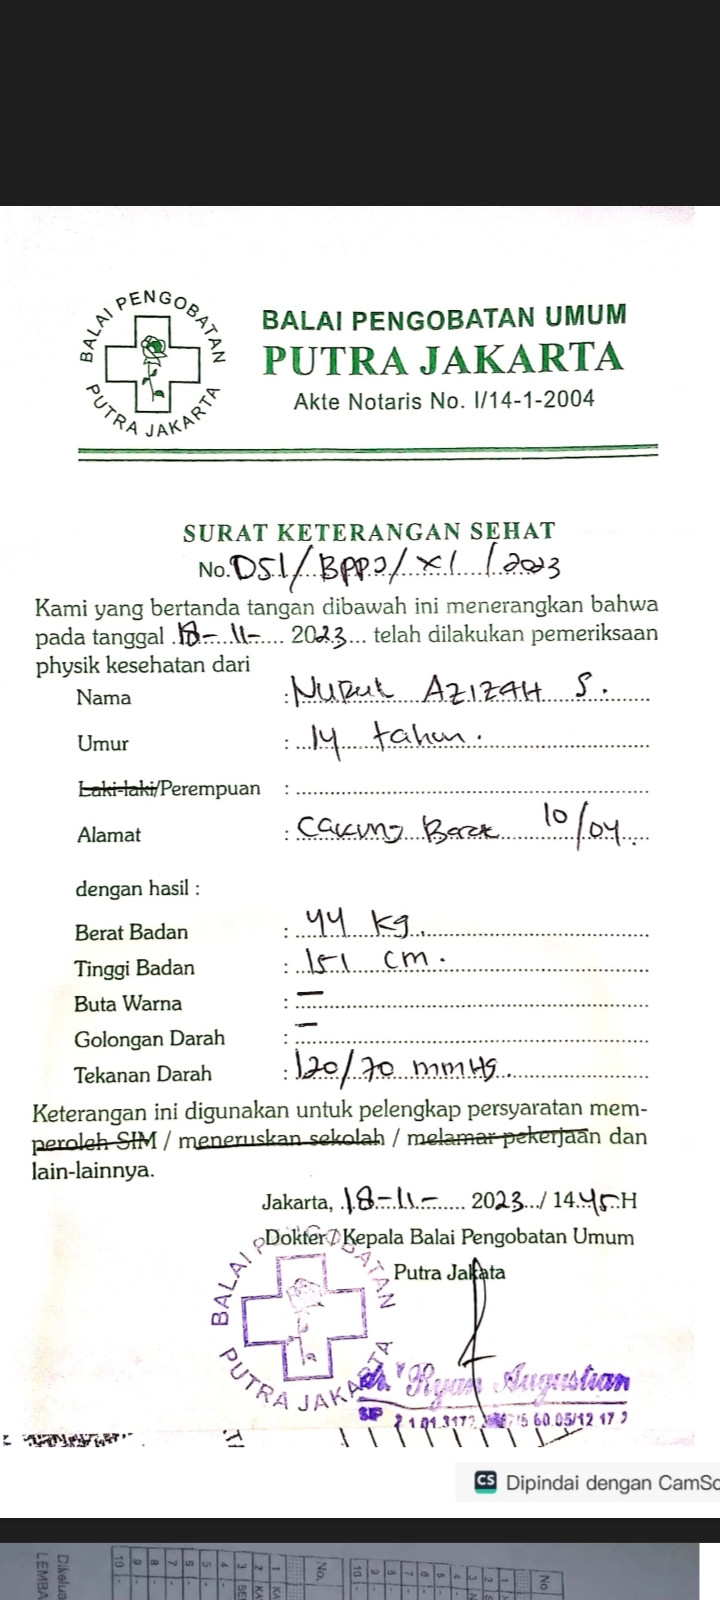 BALAI PENGOBATAN
PUTRA JAKARTA
BALAI PENGOBATAN UMUM
PUTRA JAKARTA
Akte Notaris No. I/14-1-2004
SURAT KETERANGAN SEHAT
No. 051/BPPJ/XI/2023
Kami yang bertanda tangan dibawah ini menerangkan bahwa
pada tanggal 18-11- 2023 telah dilakukan pemeriksaan
physik kesehatan dari
Nama : Nurul AZIZAH S.
Umur : 14 tahun.
Laki-laki/Perempuan :
Alamat : Cakung Barat 10/04
dengan hasil :
Berat Badan : 44 kg.
Tinggi Badan : 151 cm.
Buta Warna : -
Golongan Darah : -
Tekanan Darah : 120/70 mmHg.
Keterangan ini digunakan untuk pelengkap persyaratan mem-
peroleh SIM / meneruskan sekolah / melamar pekerjaan dan
lain-lainnya.
Jakarta, 18-11- 2023 / 1445 H
Dokter / Kepala Balai Pengobatan Umum
Putra Jakata
BALAI PENGOBATAN
PUTRA JAKARTA
dr. Ryan Augustian
SIP
CS Dipindai dengan CamSc
Dikelua
LEMBA
No.
No